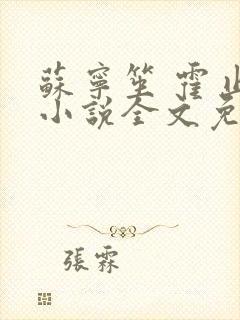 蘇寧笙 霍
小說全文免
張霖